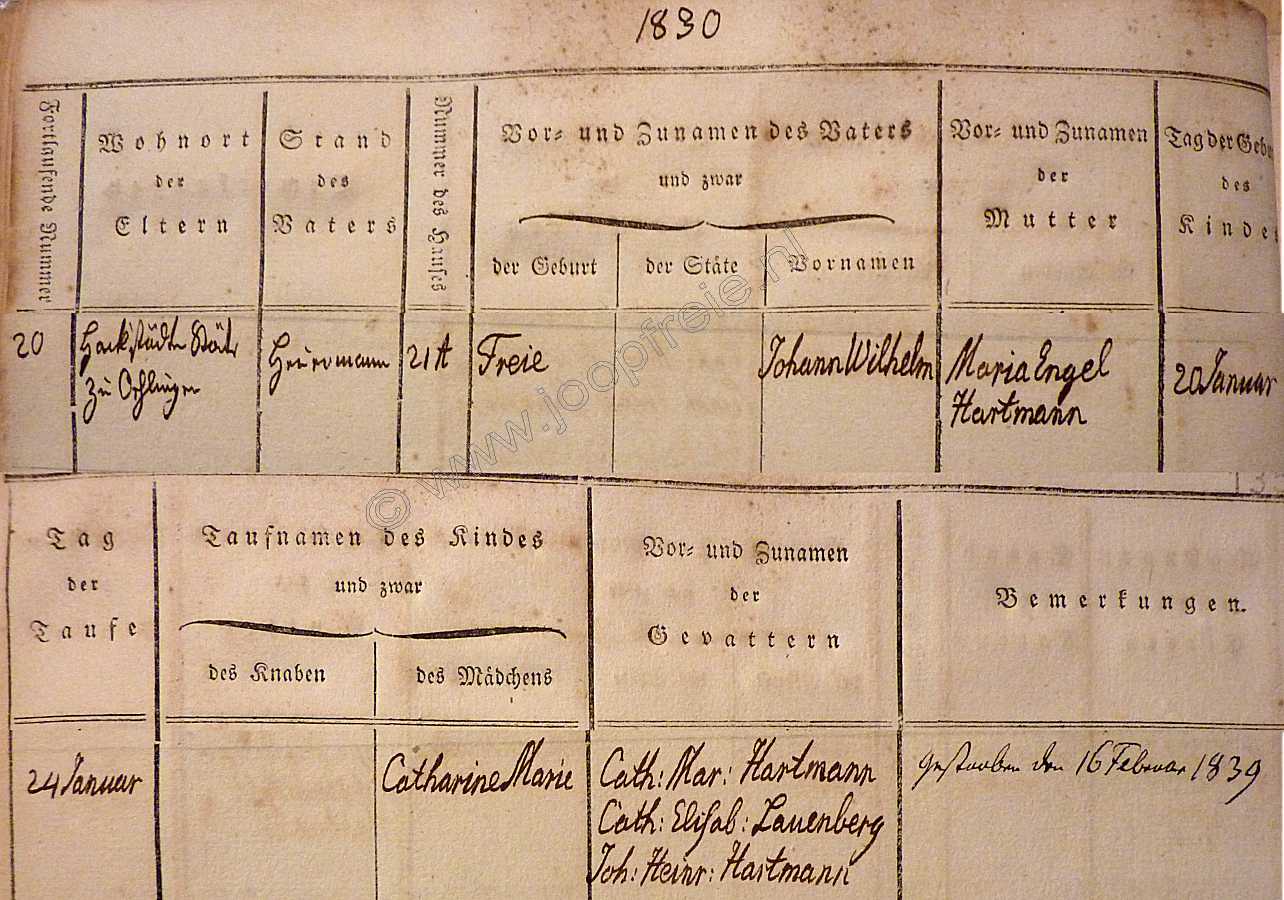 1830
Fortlaufende Nummer
Wohnort
der
Eltern
Stand
des
Vaters
Nummer des Hauses
Vor- und Zunamen des Vaters
und zwar
der Geburt
der Stäte
Vornamen
Vor- und Zunamen
der
Mutter
Tag der Gebu
des
Kindes
20
Hackstädts Stäte
zu Oehlingen
Heuermann
21A
Freie
Johann Wilhelm
Maria Engel
Hartmann
20 Januar
© www.joopfreie.nl
Tag
der
Taufe
Taufnamen des Kindes
und zwar
des Knaben
des Mädchens
Vor- und Zunamen
der
Gevattern
Bemerkungen.
24 Januar
Catharine Marie
Cath: Mar: Hartmann
Cath: Elisab: Lauenberg
Joh: Heinr: Hartmann
gestorben den 16 Februar 1839